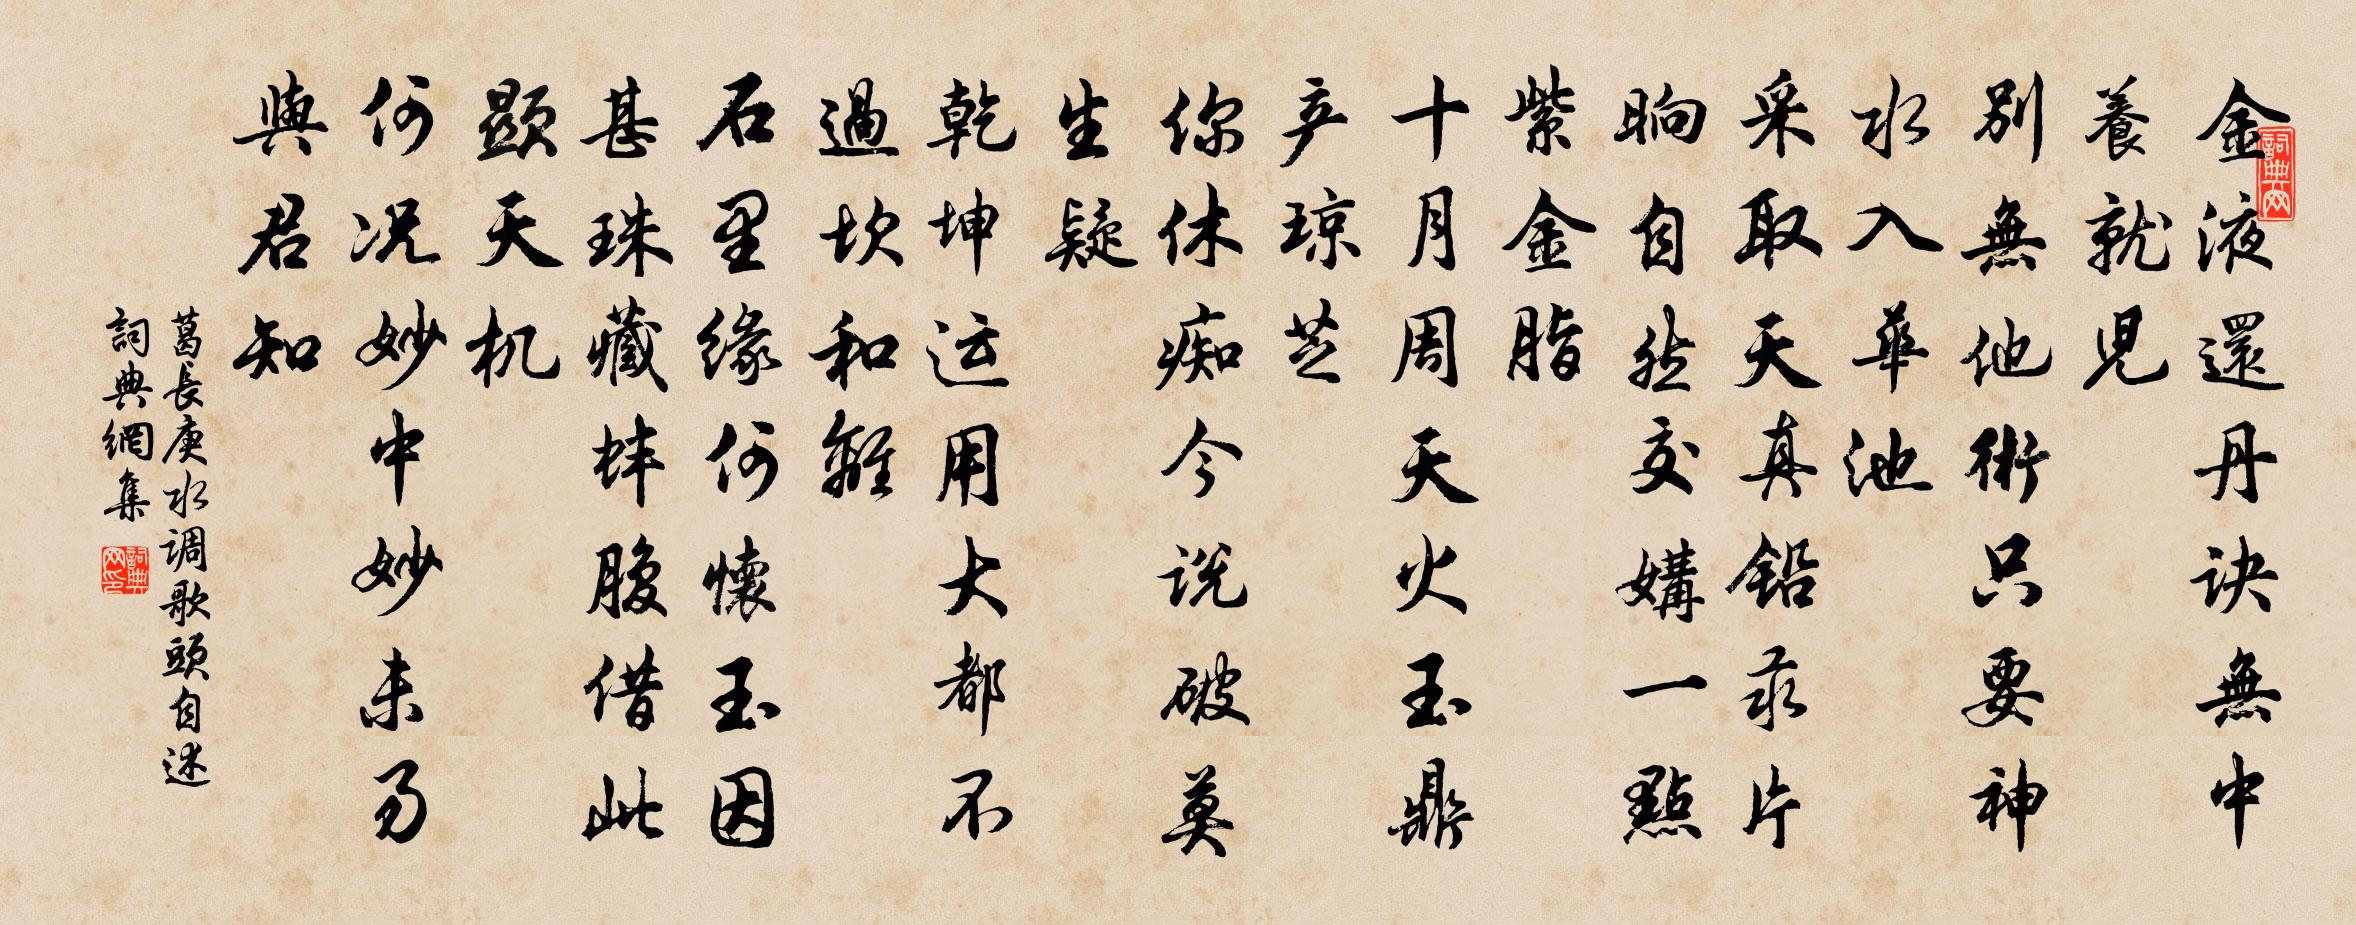 金液還丹訣無中
養就兒
别無他術只要神
水入華池
采取天真铅汞片
晌自然交媾一點
紫金脂
十月周天火玉鼎
产琼芝
你休痴今说破莫
生疑
乾坤运用大都不
過坎和離
石里缘何懷玉因
甚珠藏蚌腹借此
顕天机
何况妙中妙未易
與君知
葛長庚水调歌頭自述
詞典網集
詞典网
詞典网印